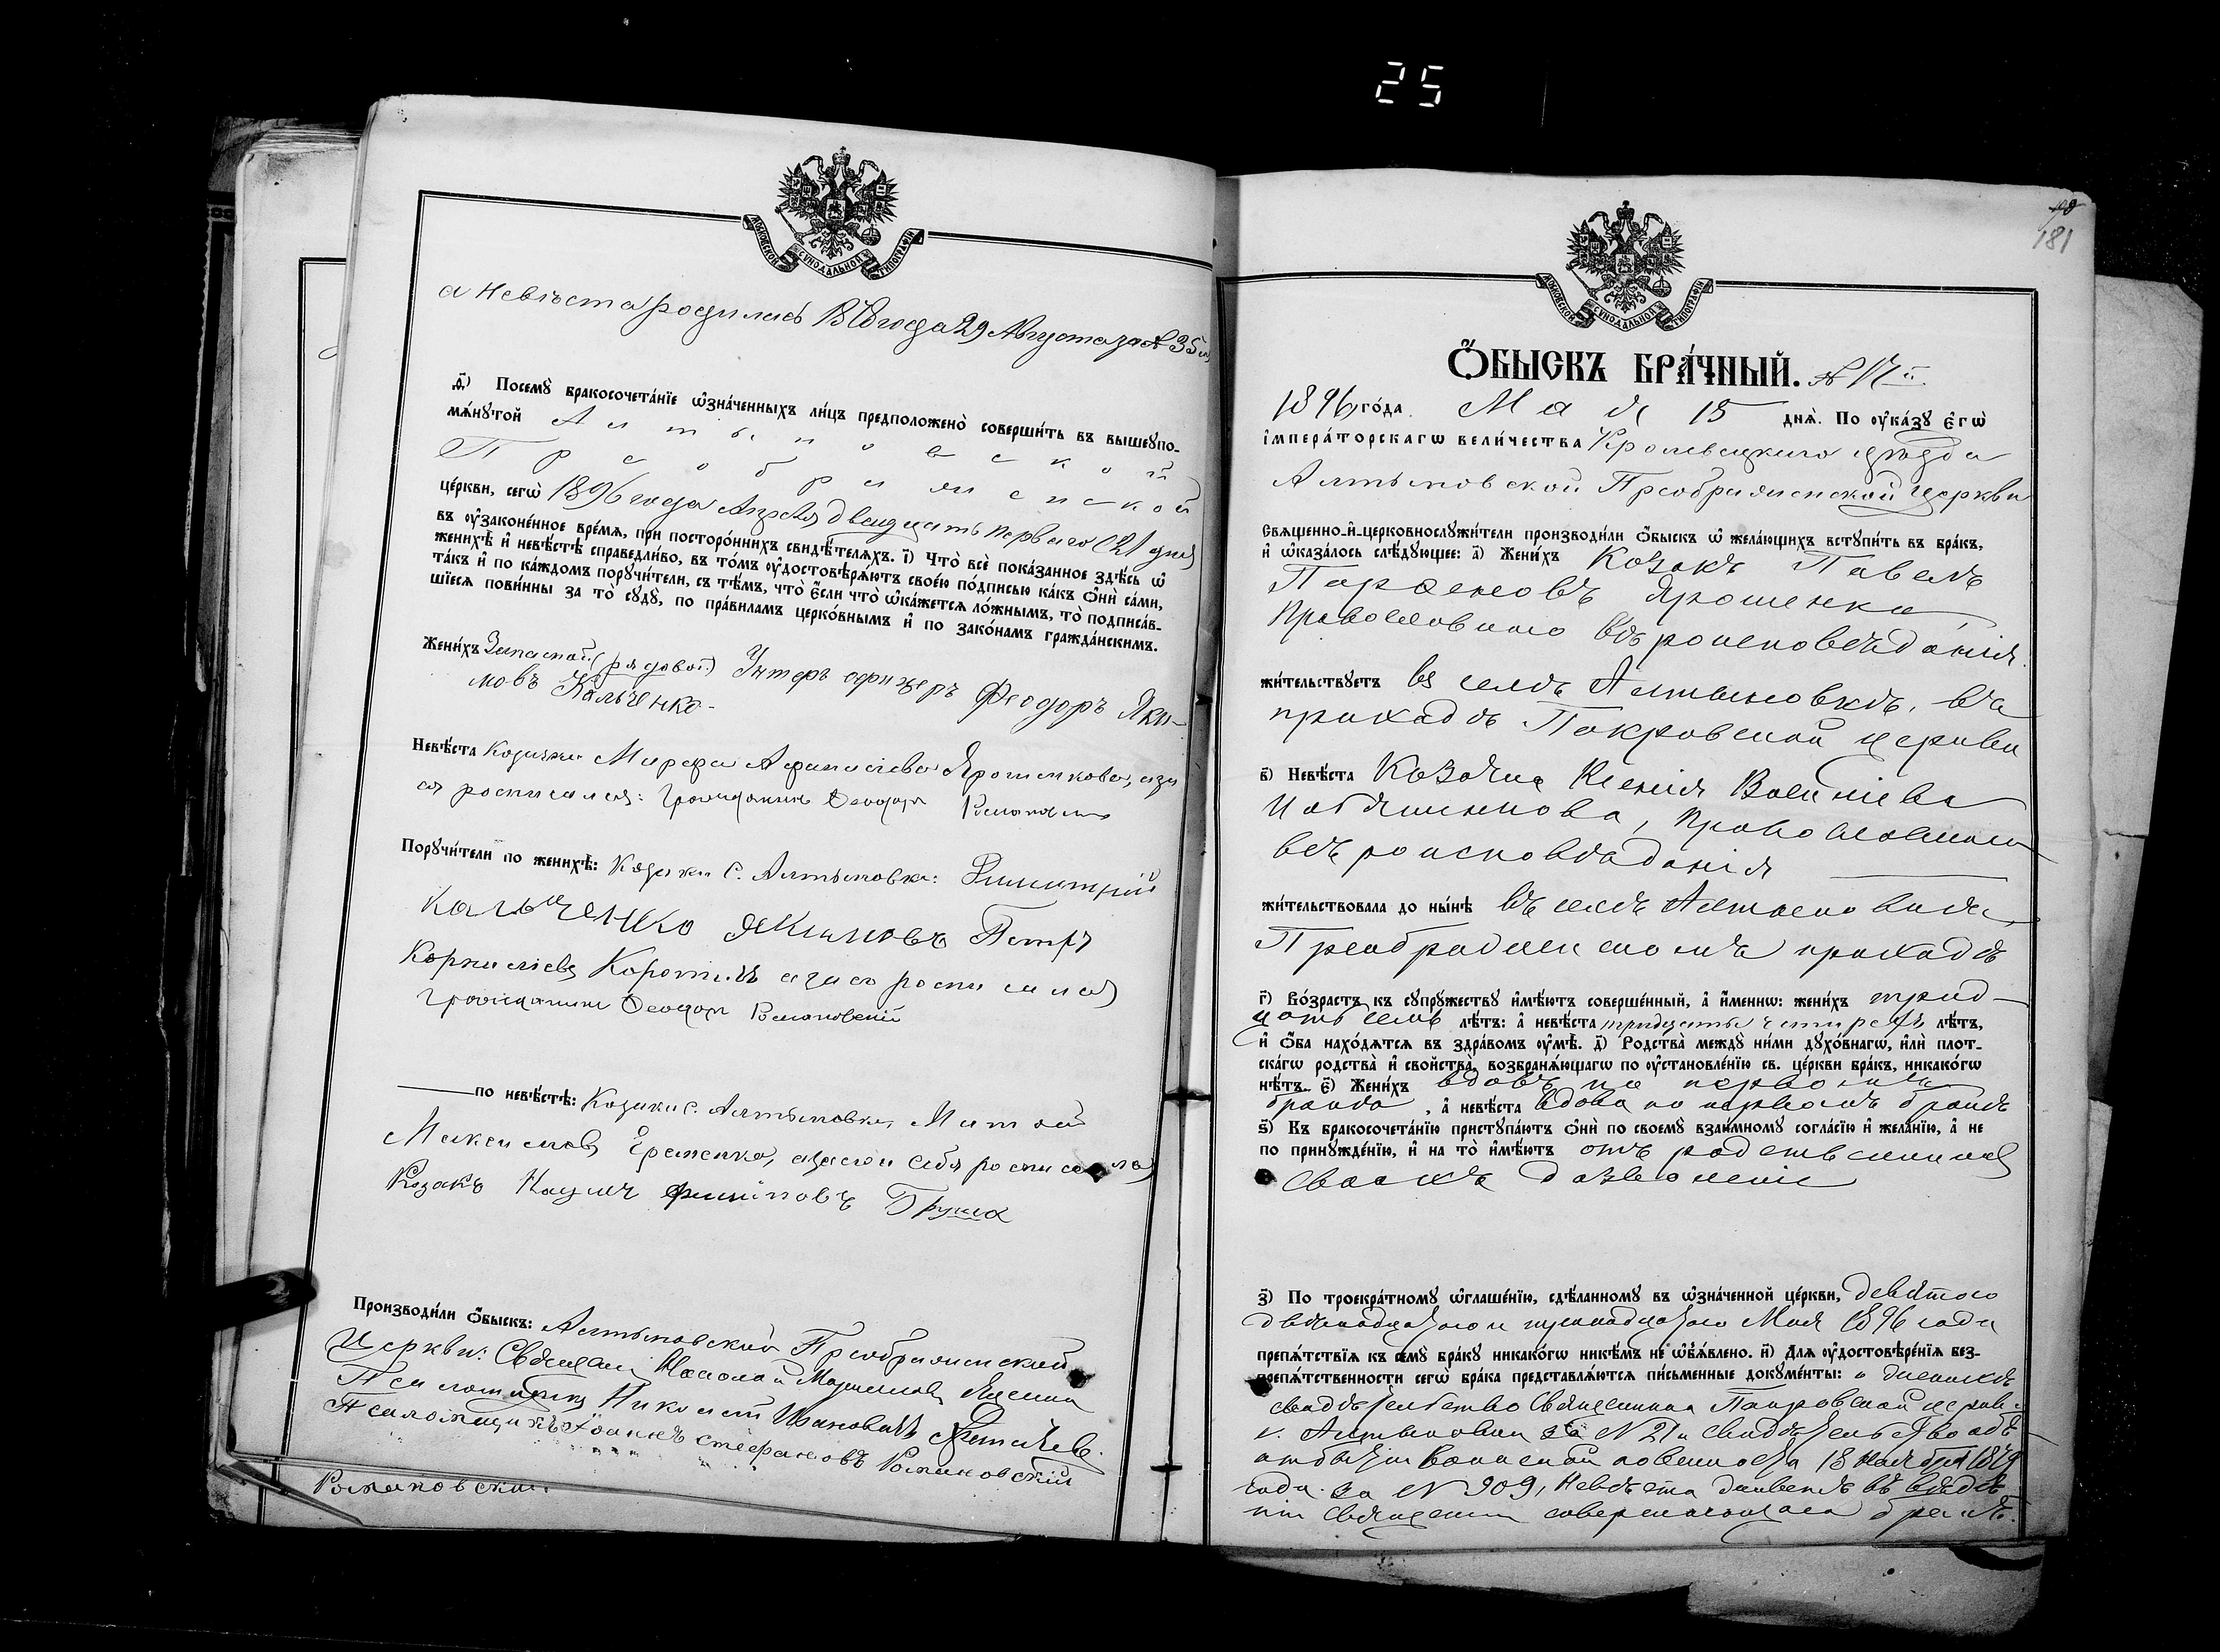 25
МОСКОВСКОЙ СѴНОДАЛЬНОЙ ТИПОГРАФІИ
а невѣста родилась года 29 Августа за № 35
Ѳ҃) Посемꙋ̀ бракосочета́нїе ѡ҆зна́ченныхъ ли́цъ предположено̀ соверши́ть въ вышеꙋпо-
мѧ́нꙋтой Алтыновской
Преображенской
це́ркви, сегѡ̀ 1896 года Апрѣля двадцать перваго (21 дня)
въ ᲂу҆законе́нное вре́мѧ, при посторо́ннихъ свидѣ́телѧхъ. і҃) Что̀ всѐ пока́занное здѣ́сь ѡ҆
женихѣ̀ и҆ невѣ́стѣ справедли́во, въ то́мъ ᲂу҆достовѣрѧ́ютъ свое́ю по́дписью ка́къ ѻ҆нѝ са́ми,
та́къ и҆ по ка́ждомъ порꙋчи́тели, съ тѣ́мъ, что̀ є҆́сли что̀ ѡ҆ка́жетсѧ ло́жнымъ, то̀ подписа́в-
шїесѧ пови́нны за то̀ сꙋдꙋ̀, по пра́виламъ церко́внымъ и҆ по зако́намъ гражда́нскимъ.
Жени́хъ Запасной (рядовой) Унтеръ офицеръ Феодоръ Яки-
мовъ Кальченко
Невѣ́ста Козачка Марфа Афанасіева Ярошенкова, а за
ея росписался: гражданинъ Феодоръ Романовскій
Порꙋчи́тели по женихѣ̀: Козаки С. Алтыновки: Димитрій
Кальченко Якимовъ Петръ
Корнилієвъ а за его росписался
гражданинъ Феодоръ Романовскій
по невѣ́стѣ: Козаки с. Алтыновки,
Максимовъ Еременко, а за себя росписался
Козакъ Наумъ Филиповъ Груша
Производи́ли ѻ҆́быскъ: Алтыновской Преображенской
Церкви: Священ.
Псаломщикъ Николай Ивановичъ
Псаломщикъ Іоаннъ Стефановъ Романовскій
Романовскій
181
МОСКОВСКОЙ СѴНОДАЛЬНОЙ ТИПОГРАФІИ
Ѻ҆́БЫСКЪ БРА́ЧНЫЙ. №
1896 го́да Мая 15 днѧ̀. По ᲂу҆ка́зꙋ є҆гѡ̀
і҆мпера́торскагѡ вели́чества Кролевецкаго уѣзда
Алтыновской Преображенской церкви
Свѧщенно-и҆-церковнослꙋжи́тели производи́ли ѻ҆́быскъ ѡ҆ жела́ющихъ встꙋпи́ть въ бра́къ,
и҆ ѡ҆каза́лось слѣ́дꙋющее: а҃) Жени́хъ Козакъ Павелъ
Парфеновъ Ярошенко
Православнаго вѣроисповѣданія
жи́тельствꙋетъ въ селѣ Алтыновкѣ, въ
приходѣ Покровской церкви
в҃) Невѣ́ста Козачка Ксенія
православнаго
вѣроисповѣданія
жи́тельствовала до ны́нѣ въ селѣ Алтыновкѣ,
Преображенскомъ приходѣ
г҃) Во́зрастъ къ сꙋпрꙋ́жествꙋ и҆мѣ́ютъ соверше́нный, а҆ и҆́меннѡ: жени́хъ трид-
цать семь лѣ́тъ: а҆ невѣ́ста тридцать четыре лѣ́тъ,
и҆ ѻ҆́ба нахо́дѧтсѧ въ здра́вомъ ᲂу҆мѣ̀. д҃) Родства̀ междꙋ̀ ни́ми дꙋхо́внагѡ, и҆лѝ плот-
ска́гѡ родства̀ и҆ свойства̀, возбранѧ́ющагѡ по ᲂу҆становле́нїю св. це́ркви бра́къ, никако́гѡ
нѣ́тъ. є҃) Жени́хъ вдовъ по первомъ
бракѣ, а҆ невѣ́ста вдова по первомъ бракѣ
ѕ҃) Къ бракосочета́нїю пристꙋпа́ютъ ѻ҆нѝ по своемꙋ̀ взаи́мномꙋ согла́сїю и҆ жела́нїю, а҆ не
по принꙋжде́нїю, и҆ на то̀ и҆мѣ́ютъ отъ родственниковъ
своихъ дозволеніе
з҃) По троекра́тномꙋ ѡ҆глаше́нїю, сдѣ́ланномꙋ въ ѡ҆зна́ченной це́ркви, девятого
двѣнадцатого и тринадцатого Мая 1896 года
препѧ́тствїѧ къ семꙋ̀ бра́кꙋ никако́гѡ никѣ́мъ не ѡ҆б̾ѧ́влено. и҃) Длѧ ᲂу҆достовѣре́нїѧ без-
препѧ́тственности сегѡ̀ бра́ка представлѧ́ютсѧ пи́сьменные докꙋме́нты: о женихѣ
свидѣтельство Священника Покровской церкви
с. Алтыновки за № 21 и свидѣтельство объ
отбытіи воинской повинности 18 Ноября 1879
года за № 909, Невѣста
священника совершающаго бракъ.